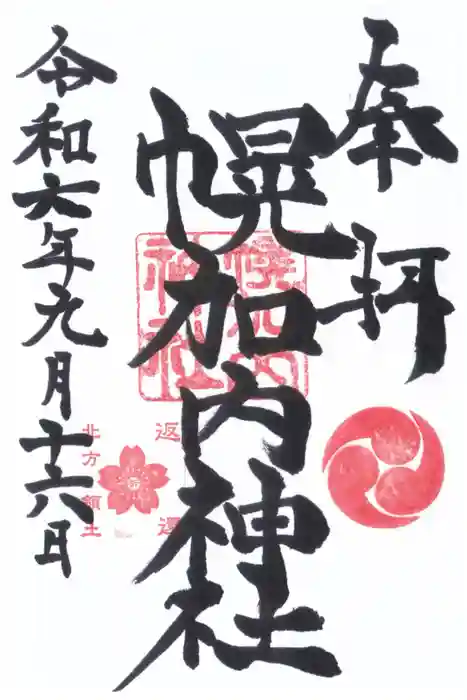 奉拝
幌加内神社
幌加内
神社
返還
北方領土
令和六年九月十六日